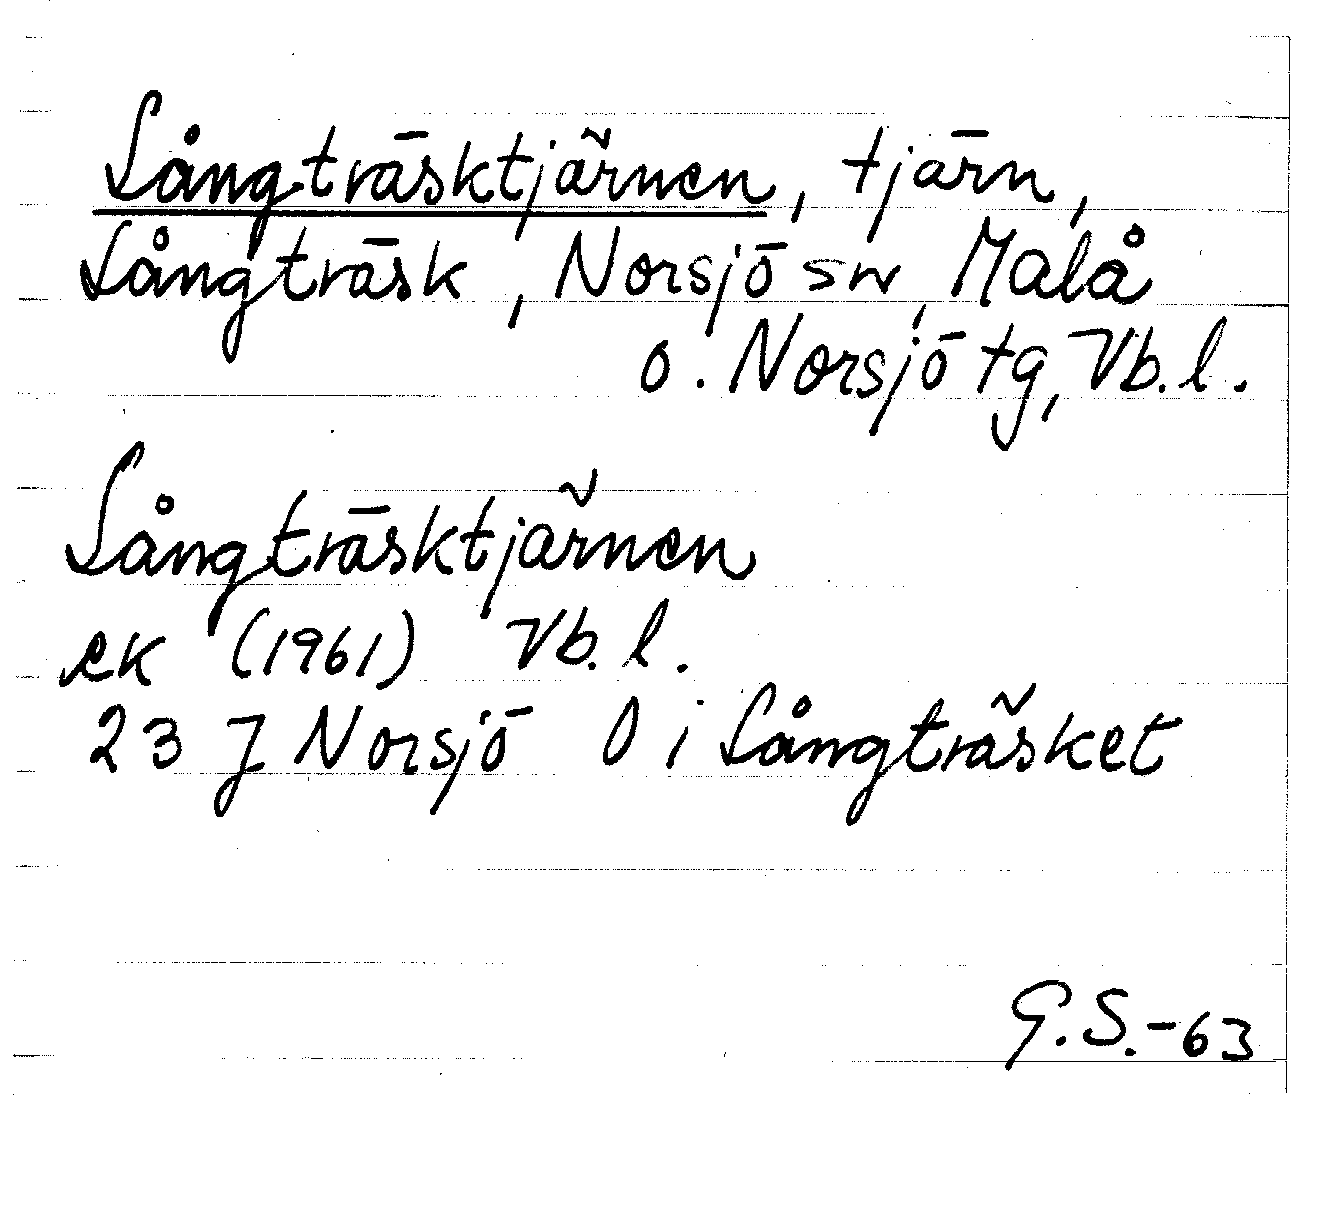 Långträsktjärnen, tjärn,
Långträsk, Norsjö sn, Malå
o. Norsjö tg, Vb. l.
Långträsktjärnen
ek (1961) Vb. l.
23 J Norsjö 0 i Långträsket
G.S.-63